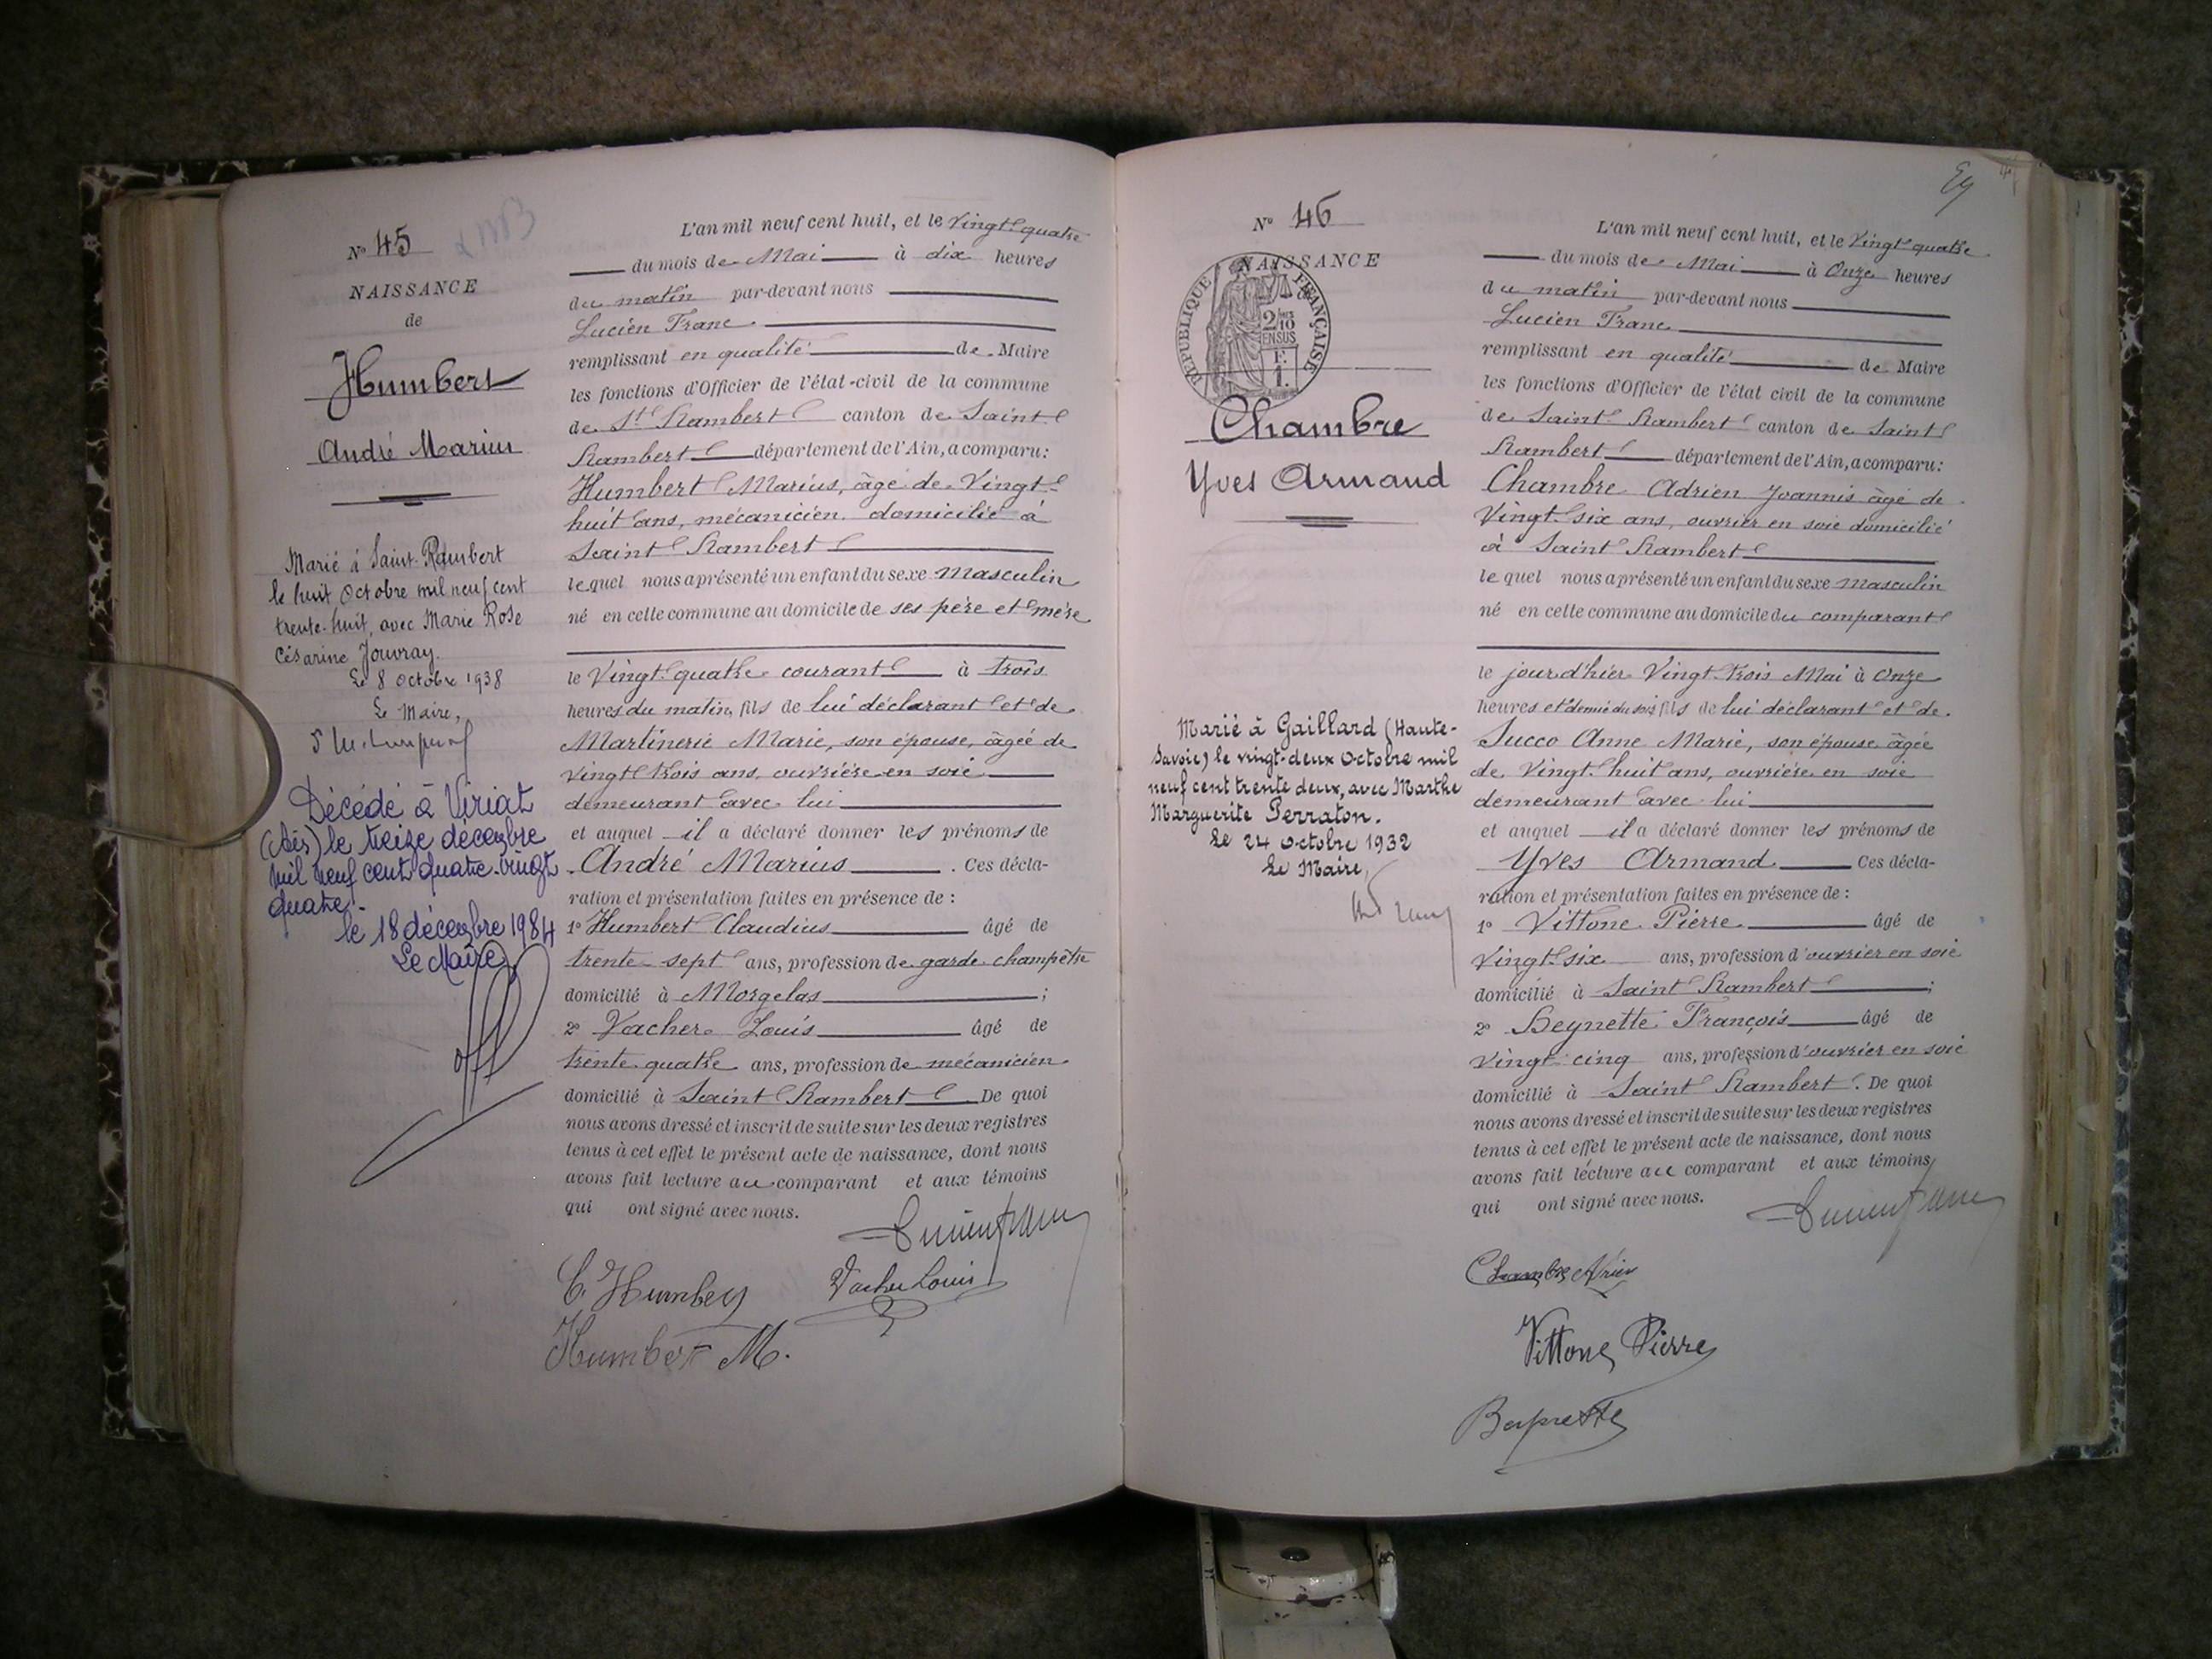 N° 45
NAISSANCE
de
Humbert
André Marius
Marié à Saint-Rambert
le huit Octobre mil neuf cent
trente-huit, avec Marie Rose
Césarine Jouvray.
Le 8 Octobre 1938
Le Maire,
Décédé à Viriat
(Ain) le treize décembre
mil neuf cent quatre-vingt
quatre.
le 18 décembre 1984
Le Maire
L'an mil neuf cent huit, et le Vingt quatre
du mois de Mai à dix heures
du matin par-devant nous
Lucien Franc
remplissant en qualité de Maire
les fonctions d'Officier de l'état-civil de la commune
de St Rambert canton de Saint
Rambert département de l'Ain, a comparu :
Humbert Marius, âgé de Vingt-
huit ans, mécanicien domicilié à
Saint Rambert
lequel nous a présenté un enfant du sexe Masculin
né en cette commune au domicile de ses père et mère
le Vingt quatre courant à trois
heures du matin, fils de lui déclarant et de
Martinerie Marie, son épouse, âgée de
vingt trois ans, ouvrière en soie
demeurant avec lui
et auquel il a déclaré donner les prénoms de
André Marius . Ces décla-
ration et présentation faites en présence de :
1° Humbert Claudius âgé de
trente-sept ans, profession de garde champêtre
domicilié à Morgelas ;
2° Vacher Louis âgé de
trente quatre ans, profession de mécanicien
domicilié à Saint Rambert De quoi
nous avons dressé et inscrit de suite sur les deux registres
tenus à cet effet le présent acte de naissance, dont nous
avons fait lecture au comparant et aux témoins
qui ont signé avec nous.
Lucien Franc
C. Humbert Vacher Louis
Humbert M.
N° 46
NAISSANCE
REPUBLIQUE FRANÇAISE
2/10
EN SUS
1 F.
Chambre
Yves Armand
Marié à Gaillard (Haute-
Savoie) le vingt-deux Octobre mil
neuf cent trente deux, avec Marthe
Marguerite Perraton.
Le 24 octobre 1932
Le Maire,
L'an mil neuf cent huit, et le Vingt quatre
du mois de Mai à Onze heures
du matin par-devant nous
Lucien Franc
remplissant en qualité de Maire
les fonctions d'Officier de l'état civil de la commune
de Saint Rambert canton de Saint
Rambert département de l'Ain, a comparu :
Chambre Adrien Joannis âgé de
Vingt-six ans, ouvrier en soie domicilié
à Saint Rambert
lequel nous a présenté un enfant du sexe masculin
né en cette commune au domicile du comparant
le jour d'hier Vingt-trois Mai à Onze
heures et demie du soir fils de lui déclarant et de
Succo Anne Marie, son épouse âgée
de Vingt-huit ans, ouvrière en soie
demeurant avec lui
et auquel il a déclaré donner les prénoms de
Yves Armand Ces décla-
ration et présentation faites en présence de :
1° Vittone Pierre âgé de
Vingt-six ans, profession d'ouvrier en soie
domicilié à Saint Rambert ;
2° Beynette François âgé de
vingt-cinq ans, profession d'ouvrier en soie
domicilié à Saint Rambert. De quoi
nous avons dressé et inscrit de suite sur les deux registres
tenus à cet effet le présent acte de naissance, dont nous
avons fait lecture au comparant et aux témoins
qui ont signé avec nous.
Lucien Franc
Chambre Adrien
Vittone Pierre